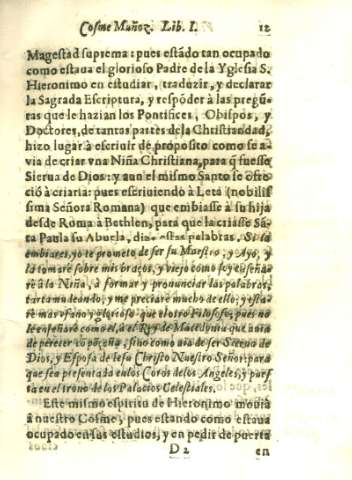 Cosme Muñoz. Lib. I. 12
Magestad suprema: pues estãdo tan ocupado
como estaua el glorioso Padre de la Yglesia S.
Hieronimo en estudiar, traduzir, y declarar
la Sagrada Escriptura, y respõder à las pregũ-
tas que le hazian los Pontifices, Obispos, y
Doctores, de tantas partes de la Christiandad,
hizo lugar à escriuir de proposito como se a-
via de criar vna Niña Christiana, para q̃ fuesse
Sierua de Dios: y aun el mismo Santo se ofre
ciò à criarla: pues escriuiendo à Leta (nobilis
sima Señora Romana) que embiasse à su hija
desde Roma à Bethlen, para que la criasse Sã-
ta Paula su Abuela, dize estas palabras. Si la
embiares, yo te prometo de ser su Maestro, y Ayo, y
la tomarè sobre mis braços, y viejo como soy enseña-
rè à la Niña, à formar y pronunciar las palabras,
tartamudeando; y me preciarè mucho de ello; y esta
rè mas vfano y glorioso que el otro Filosofo; pues no
le enseñarè como el, à el Rey de Macedonia que auia
de perecer cõ poçoña, sino como aia de ser Sierua de
Dios, y Esposa de Iesu Christo Nuestro Señor: para
que sea presentada en los Coros de los Angeles, y par
sea en el trono de los Palacios Celestiales.
Este mismo espiritu de Hieronimo mouia
à nuestro Cosme, pues estando como estaua
ocupado en sus estudios, y en pedir de puerta
D 2 en